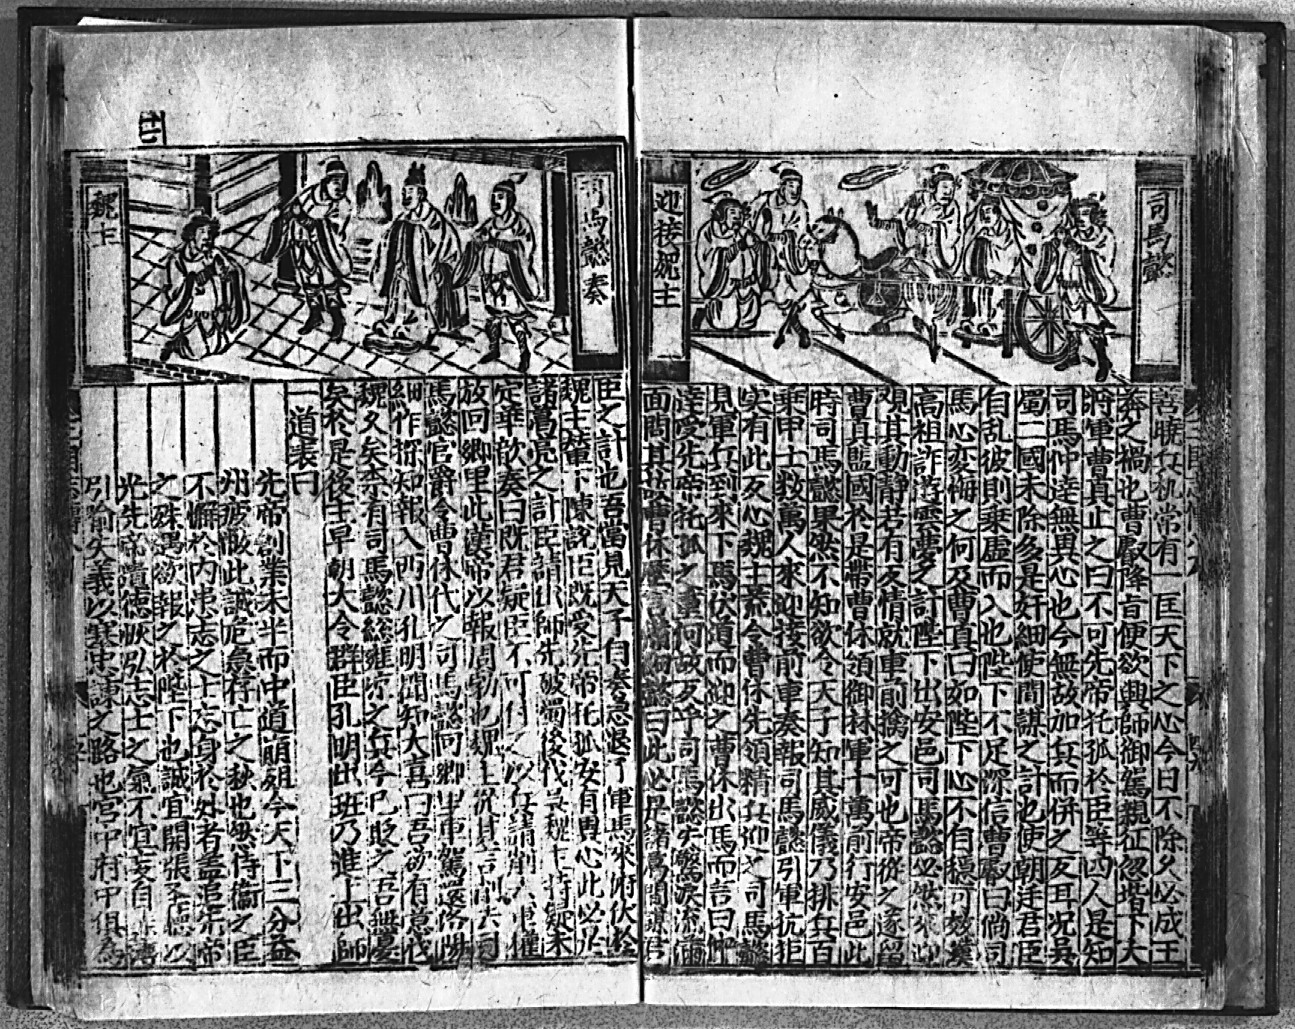 司馬懿
迎接魏主
善曉兵机常有一匡天下之心今日不除久必成王
莽之禍也曹叡降旨便欲興師御駕親征忽堦下大
將軍曹真止之曰不可先帝托孤於臣等四人是知
司馬仲達無異心也今無故加兵而併之反耳况吳
蜀二國未除多是奸細使間諜之計也使朝廷君臣
自乱彼則乗虚而入也陛下不足深信曹叡曰倘司
馬心变悔之何及曹真曰如陛下心不自穩可效漢
高祖詐遊雲夢之計陛下出安邑司馬懿必然來迎
观其動静若有反情就車前擒之可也帝從之遂留
曹真監國於是帶曹休領御林軍十萬前行安邑此
時司馬懿果然不知欲令天子知其威儀乃排兵百
乗甲士数萬人來迎接前車奏報司馬懿引軍抗拒
実有此反心魏主荒令曹休先領精兵迎之司馬懿
見軍兵到來下馬伏道而迎之曹休出馬而言曰仲
達受先帝托孤之重何故反乎司馬懿失驚淚流滿
面問其故曹休歷言 懿曰此必是諸葛間諜君
司馬懿奏
魏主
臣之計也吾當見天子自奏急退了軍馬來 俯伏於
魏主輦下陳說臣既受先帝托孤安有異心此必
諸葛亮之計臣請 師先破蜀後伐吳魏主持疑未
定華歆奏曰既君疑臣不可付之以兵請削 軍權
放回鄉里此漢帝以報周勃也魏主從其言削去司
馬懿官爵令曹休代之司馬懿回鄉里車駕還洛陽
細作探知報入西川孔明聞知大喜曰吾欲有意伐
魏久矣柰有司馬懿総雍凉之兵今已貶之吾無憂
矣於是後主早朝大会群臣孔明出班乃進上出師
一道表曰
先帝創業未半而中道崩殂今天下三分益
州疲敝此誠危急存亡之秋也然侍衞之臣
不懈於内忠志之士忘身於外者盖追先帝
之殊遇欲報之於陛下也誠宜開張圣德以
光先帝遺德恢弘志士之氣不宜妄自菲薄
引喻失義以塞忠諫之路也宮中府中俱為